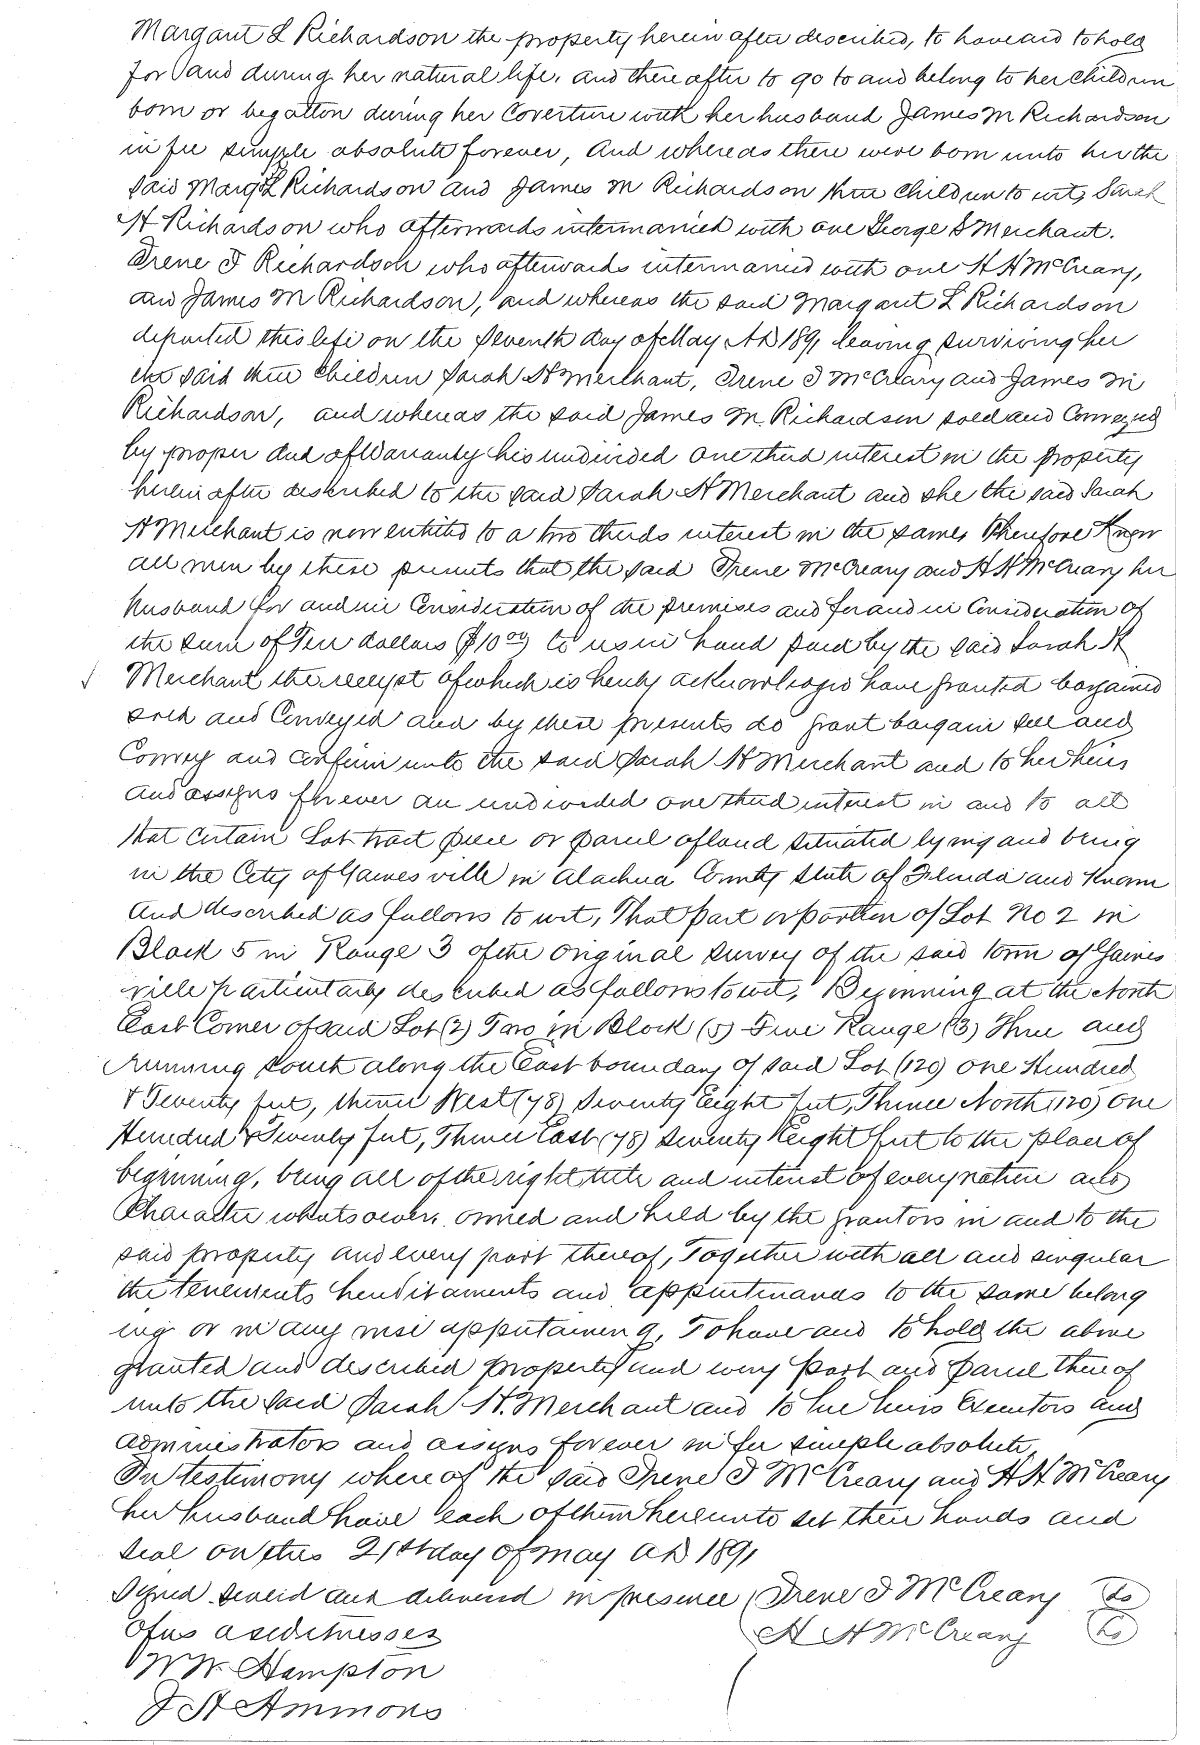 Margaret L Richardson the property herein after described, to have and to hold
for and during her natural life. and thereafter to go to and belong to her children
born or begotton during her Coverture with her husband James M Richardson
in fee simple absolute forever, And whereas there were born unto her the
said Margt L Richardson and James M Richardson three children to wit, Sarah
H Richardson who afterwards intermarried with one George S Merchant.
Irene I Richardson who afterwards intermarried with one H H McCreary,
and James M Richardson, and whereas the said Margaret L Richardson
departed this life on the Seventh day of May AD 1891 leaving surviving her
the said three children Sarah H Merchant, Irene I McCreary and James M
Richardson, and whereas the said James M. Richardson sold and Conveyed
by proper deed of Warranty his undivided one third interest in the property
herein after described to the said Sarah H Merchant and she the said Sarah
H Merchant is now entitled to a two thirds interest in the same, Therefore Know
all men by these presents that the said Irene McCreary and H H McCreary her
husband for and in Consideration of the premises and for and in Consideration of
the sum of Ten dollars ($10 00) to us in hand paid by the said Sarah H
Merchant the receipt of which is hereby acknowledged have granted bargained
sold and Conveyed and by these presents do grant bargain sell and
Convey and confirm unto the said Sarah H Merchant and to her heirs
and assigns forever an undivided one third interest in and to all
that certain Lot tract piece or parcel of land situated lying and being
in the City of Gainesville in Alachua County State of Florida and Known
and described as follows to wit, That part or portion of Lot No 2 in
Block 5 in Range 3 of the original survey of the said town of Gaines
ville particularly described as follows to wit, Beginning at the North
East Corner of said Lot (2) Two in Block (5) Five Range (3) Three and
running South along the East boundary of said Lot (120) one Hundred
& Twenty feet, thence West (78) Seventy Eight feet, Thence North (120) One
Hundred & Twenty feet, Thence East (78) Seventy Eight feet to the place of
beginning, being all of the right title and interest of every nature and
Character whatsoever owned and held by the grantors in and to the
said property and every part thereof, Together with all and singular
the tenements hereditaments and appurtenances to the same belong
ing or in any wise appertaining, To have and to hold the above
granted and described property and every part and parcel thereof
unto the said Sarah H. Merchant and to her heirs Executors and
administrators and assigns forever in fee simple absolute,
In testimony whereof the said Irene I McCreary and H H McCreary
her husband have each of them hereunto set their hands and
seal on this 21st day of May AD 1891
Signed sealed and delivered in presence Irene I McCreary LS
of us as witnesses H H McCreary LS
W W Hampton
J H Ammons